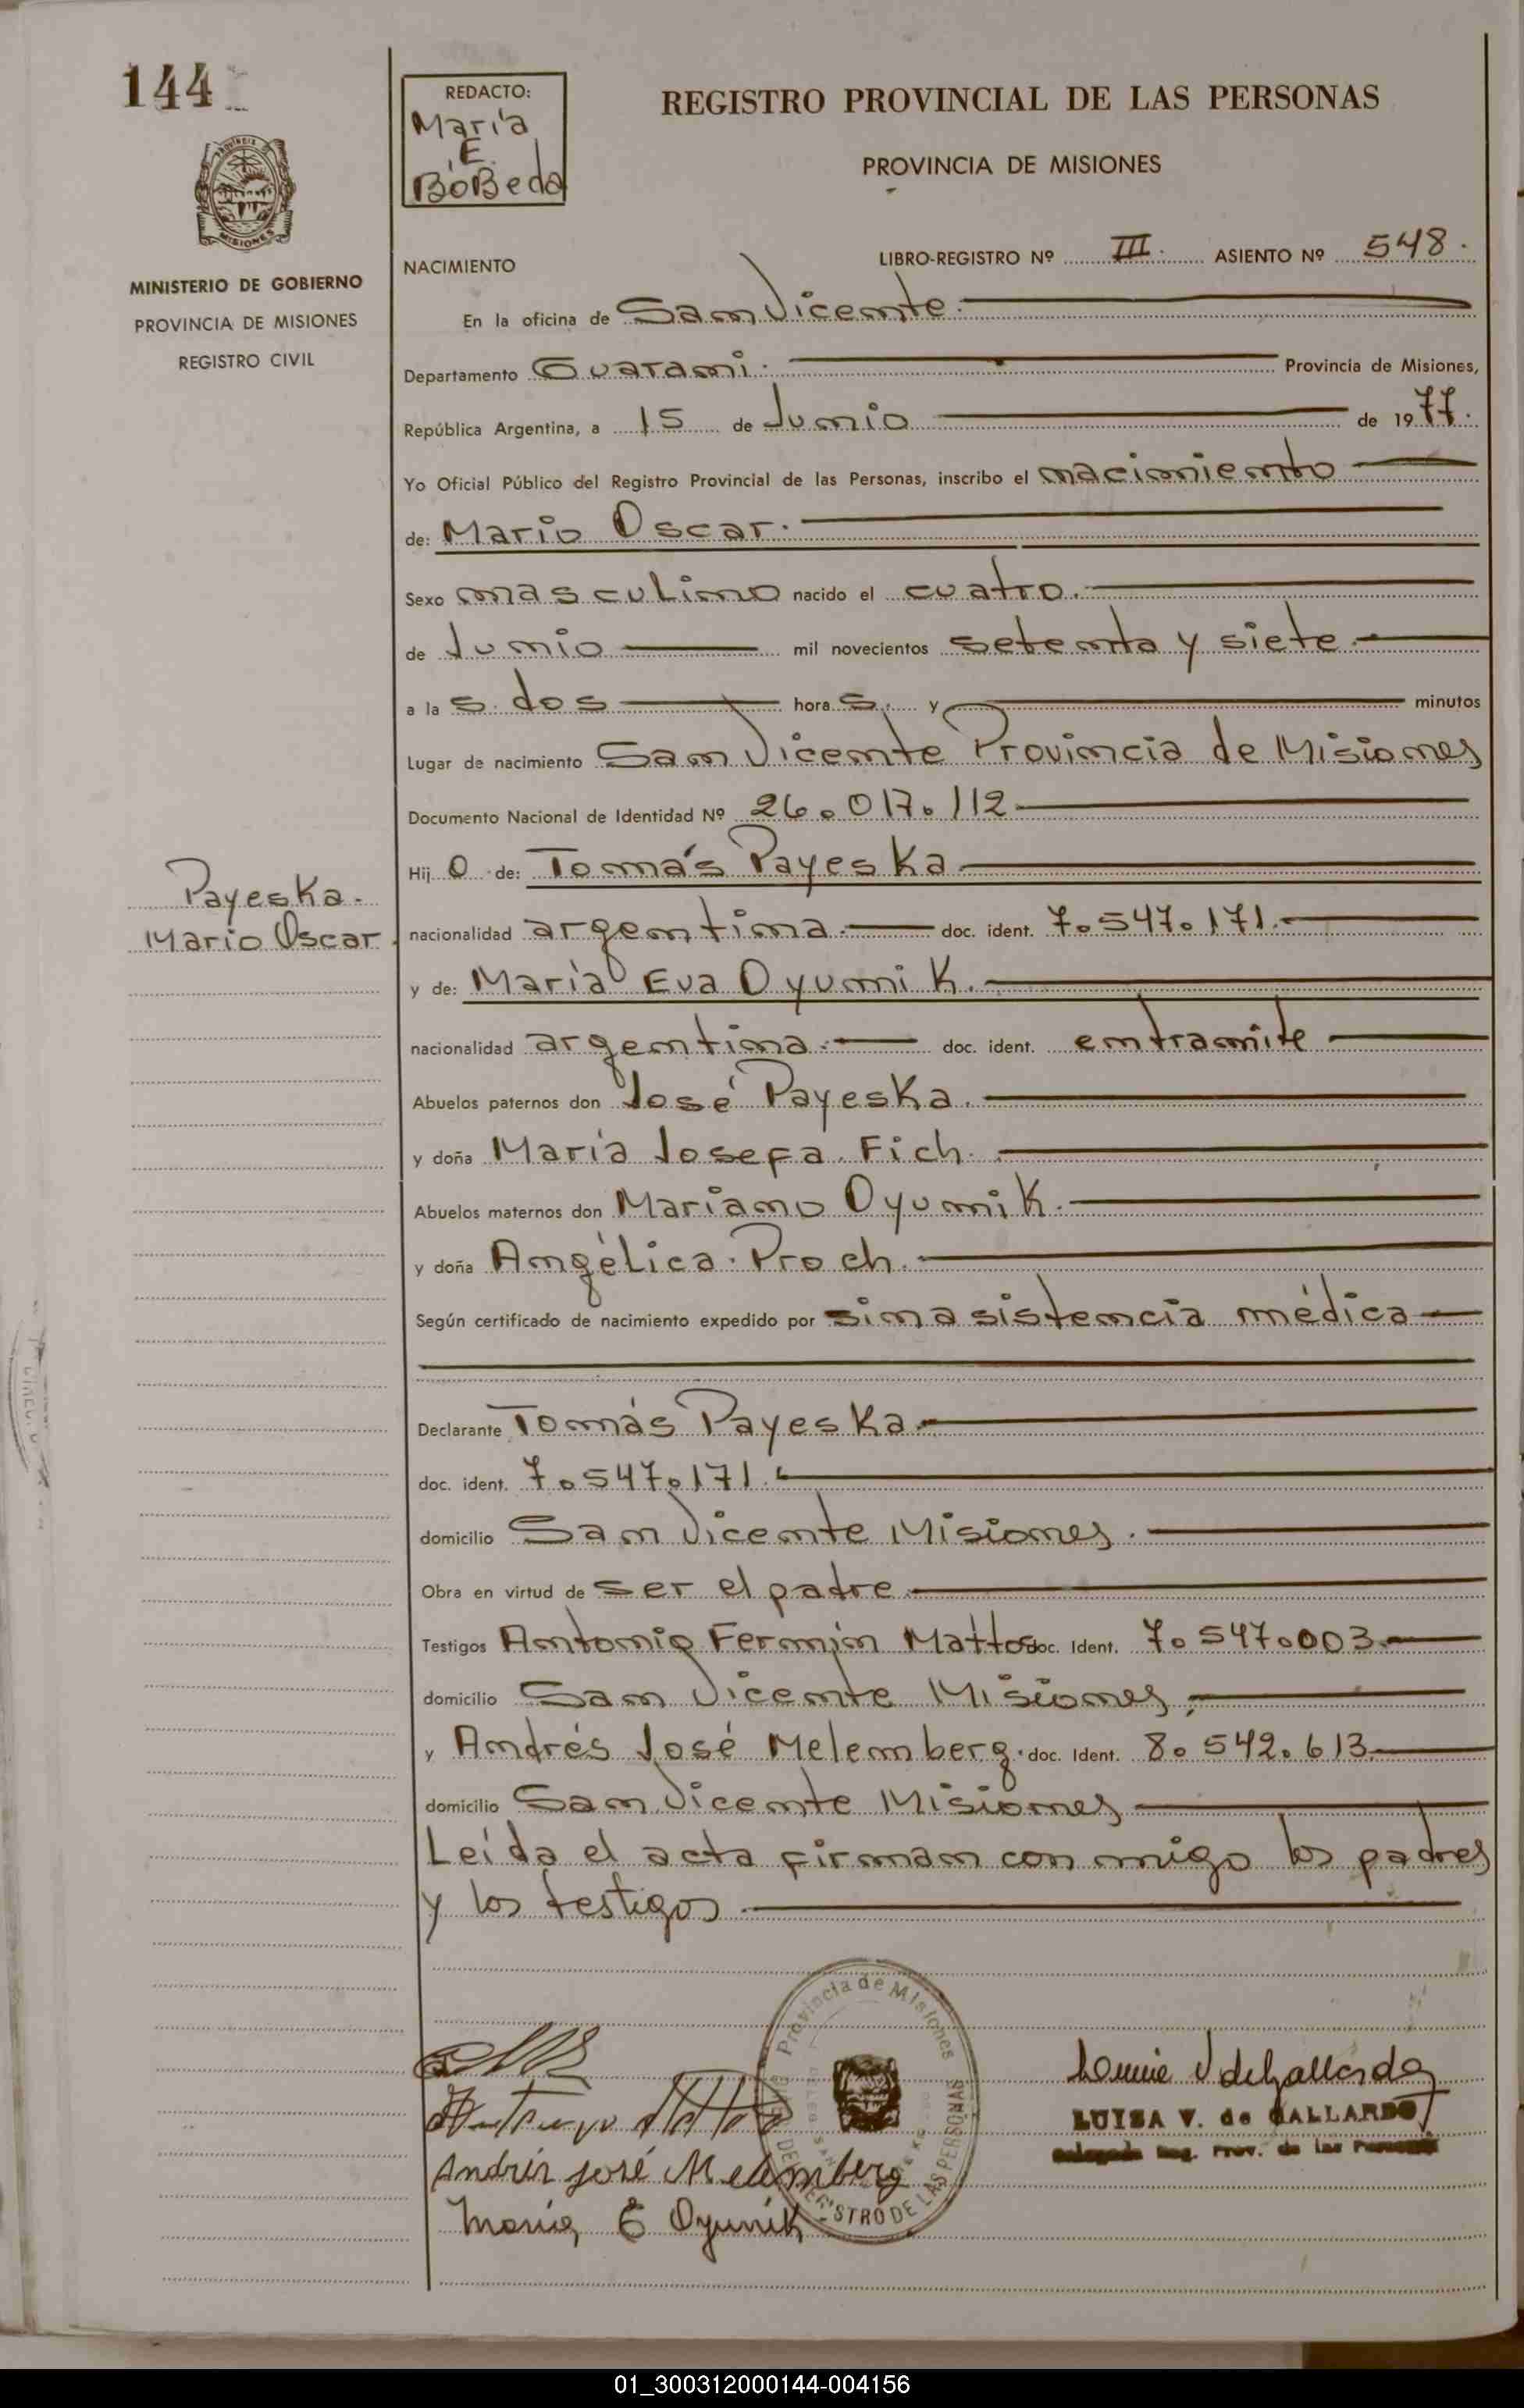 144
REDACTO:
María
E.
BoBeda
REGISTRO PROVINCIAL DE LAS PERSONAS
PROVINCIA DE MISIONES
MISIONES
MINISTERIO DE GOBIERNO
PROVINCIA DE MISIONES
REGISTRO CIVIL
NACIMIENTO
LIBRO-REGISTRO Nº III. ASIENTO Nº 548.
En la oficina de San Vicente.
Departamento Guarani. Provincia de Misiones,
República Argentina, a 15 de Junio de 1977.
Yo Oficial Público del Registro Provincial de las Personas, inscribo el nacimiento
de: Mario Oscar.
Sexo masculino nacido el cuatro.
de Junio mil novecientos setenta y siete
a las dos horas. y minutos
Lugar de nacimiento San Vicente Provincia de Misiones
Documento Nacional de Identidad Nº 26.017.112
Hijo de: Tomás Payeska
Payeska.
Mario Oscar
nacionalidad argentina. doc. ident. 7.547.171.
y de: María Eva Oyunik.
nacionalidad argentina. doc. ident. entramite
Abuelos paternos don José Payeska.
y doña María Josefa Fich.
Abuelos maternos don Mariano Oyunik.
y doña Angélica Proch.
Según certificado de nacimiento expedido por sinasistencia médica
Declarante Tomás Payeska
doc. ident. 7.547.171.
domicilio San Vicente Misiones.
Obra en virtud de ser el padre
Testigos Antonio Fermin Mattos doc. Ident. 7.547.003
domicilio San Vicente Misiones
y Andrés José Melemberg. doc. Ident. 8.542.613
domicilio San Vicente Misiones
Leída el acta firman conmigo los padres
y los testigos
Provincia de Misiones
REGISTRO DE LAS PERSONAS
LUISA V. de GALLARDO
Delegada Reg. Prov. de las Personas
Andrés José Melemberg
María E Oyunik
01_300312000144-004156